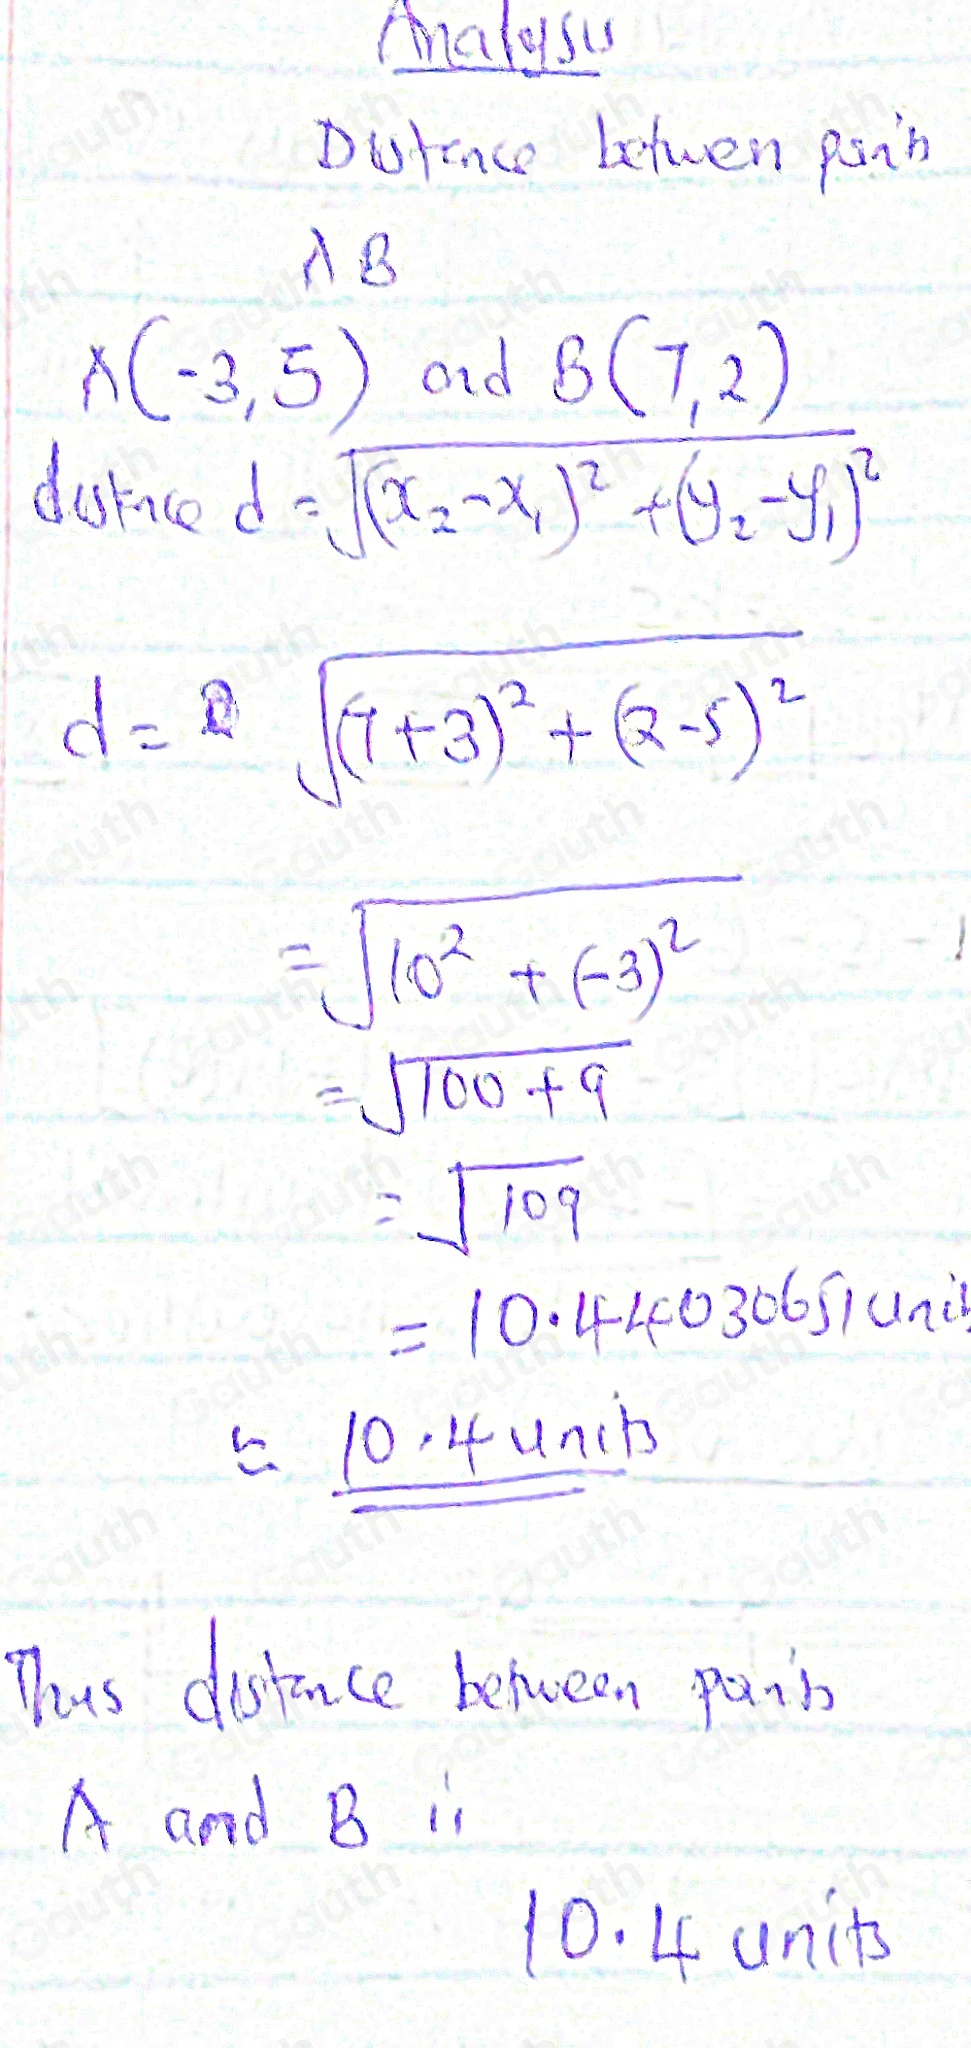 Analysis
Distance between points
AB
A(-3,5) and B(7,2)
distance d = √(x₂-x₁)² + (y₂-y₁)²
d = √(7+3)² + (2-5)²
= √10² + (-3)²
= √100 + 9
= √109
= 10.44030651 units
≈ 10.4 units
Thus distance between points
A and B is
10.4 units